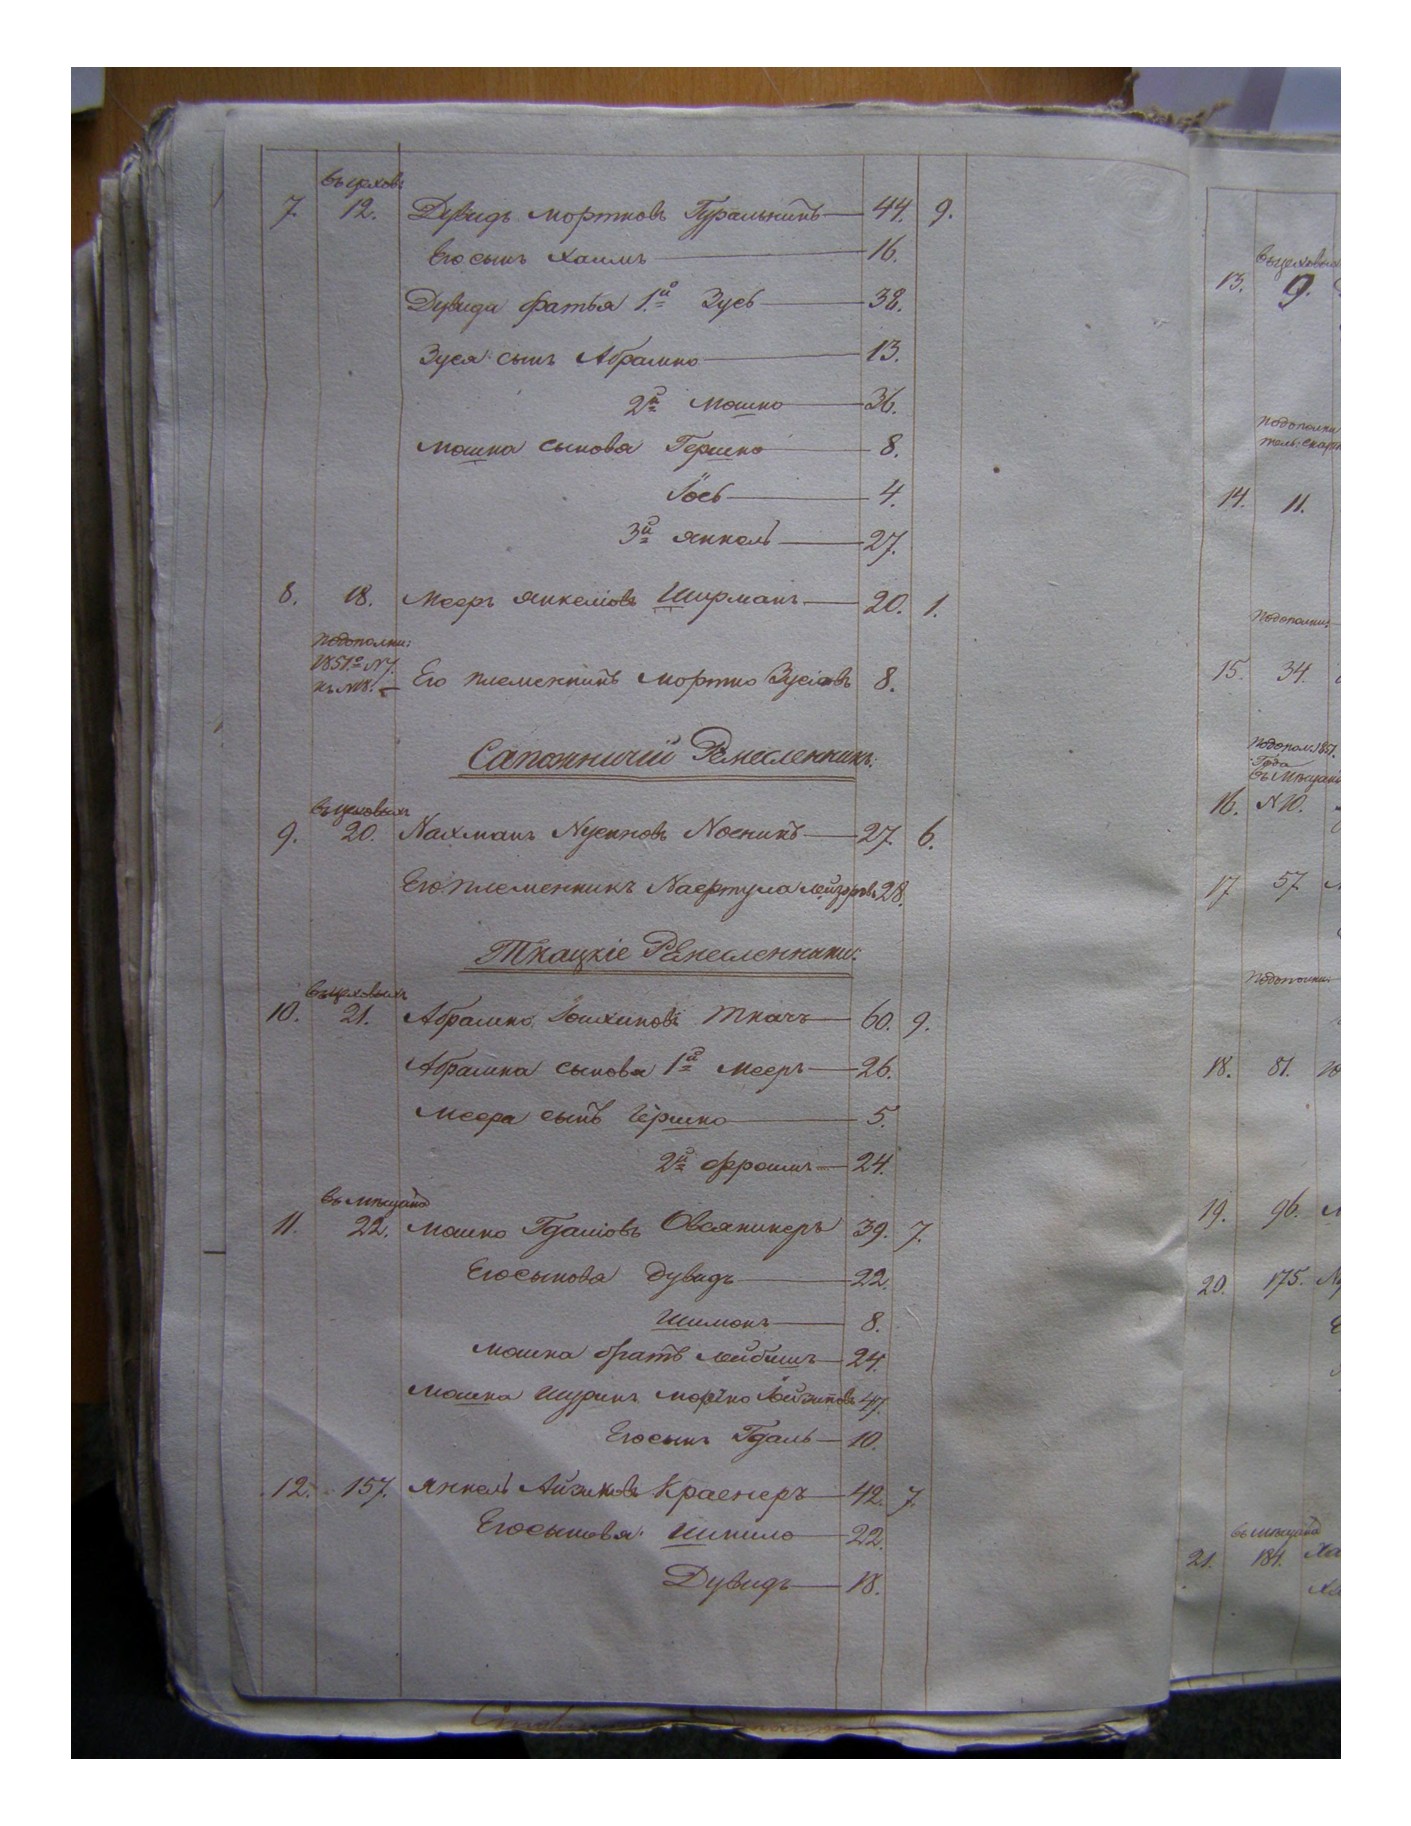 въ цехов:
7. 12. Дувидъ Мортковъ Гуральникъ — 44. 9.
Его сынъ Хаимъ — 16.
Дувида братья 1й Зусь — 38.
Зуся сынъ Абрамко — 13.
2й Мошко — 36.
Мошка сыновья Гершко — 8.
Іось — 4.
3й Янкель — 27.
8. 18. Мееръ Янкеліовъ Ширманъ — 20. 1.
Подополни:
1851го N7.
Его племенникъ Мортко Зусіовъ 8.
Сапожничіи Ремесленники:
въ цеховыхъ
9. 20. Нахманъ Нусиновъ Носникъ — 27. 6.
Его племенникъ Лейзоровъ 28.
Ткацкіе Ремесленники:
въ цеховыхъ
10. 21. Абрамко Ткачъ — 60. 9.
Абрамка сыновья 1й Мееръ — 26.
Меера сынъ Гершко — 5.
2й Фроимъ — 24.
въ мѣщанъ
11. 22. Мошко Гдаліовъ 39. 7.
Его сыновья Дувидъ — 22.
Шимонъ — 8.
Мошка братъ Лейбишъ — 24.
Мошка шуринъ Мортко 47.
Его сынъ Гдаль — 10.
12. 157. Янкель Айзиковъ Краснеръ — 42. 7.
Его сыновья Шпило — 22.
Дувидъ — 18.
въ цеховыхъ
13. 9.
Подополни
14. 11.
Подополни:
15. 34.
Подопол: 1851.
Года
въ мѣщанъ
16. N10.
17. 57.
Подополни:
18. 81.
19. 96.
20. 175.
въ мѣщанъ
21. 184. Ха